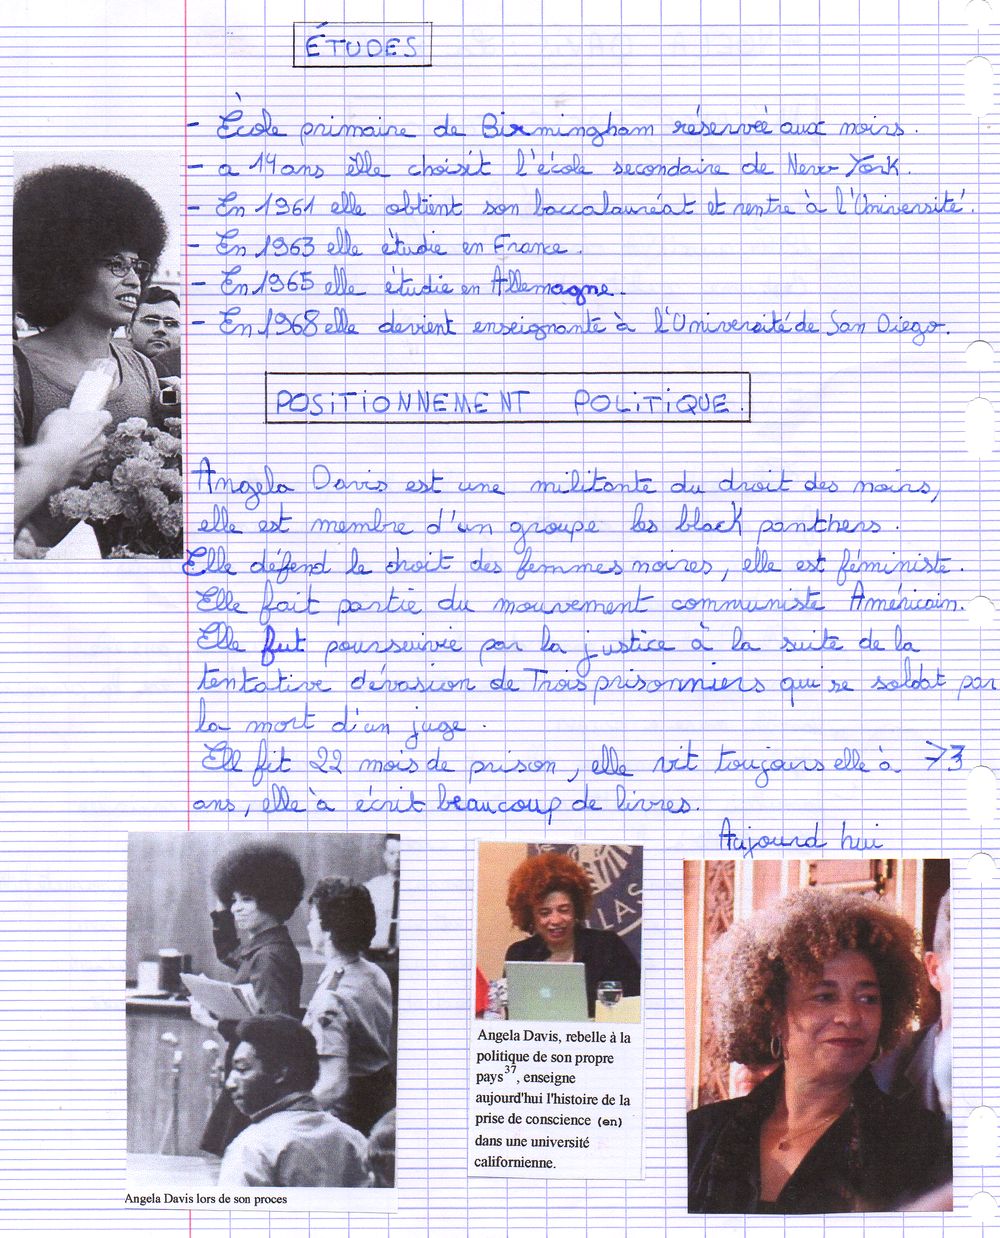 ÉTUDES
- École primaire de Birmingham réservée aux noirs.
- a 14 ans elle choisit l'école secondaire de New York.
- En 1961 elle obtient son baccalauréat et rentre à l'Université.
- En 1963 elle étudie en France.
- En 1965 elle étudie en Allemagne.
- En 1968 elle devient enseignante à l'Université de San Diego.
POSITIONNEMENT POLITIQUE.
Angela Davis est une militante du droit des noirs,
elle est membre d'un groupe les black panthers.
Elle défend le droit des femmes noires, elle est féministe.
Elle fait partie du mouvement communiste Américain.
Elle fut poursuivie par la justice à la suite de la
tentative d'évasion de Trois prisonniers qui se soldat par
la mort d'un juge.
Elle fit 22 mois de prison, elle vit toujours elle à 73
ans, elle à écrit beaucoup de livres.
Aujourd hui
LAS
Angela Davis, rebelle à la
politique de son propre
pays37, enseigne
aujourd'hui l'histoire de la
prise de conscience (en)
dans une université
californienne.
Angela Davis lors de son proces